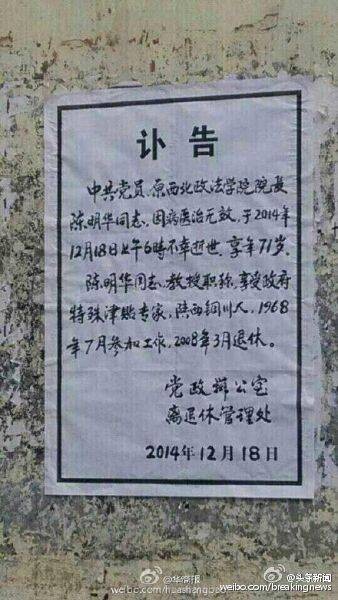 讣告
中共党员、原西北政法学院院长
陈明华同志，因病医治无效，于2014年
12月18日上午6時不幸逝世，享年71岁。
陈明华同志，教授职称，享受政府
特殊津贴专家，陕西铜川人，1968
年7月参加工作，2008年3月退休。
党政辦公室
离退休管理处
2014年12月18日
@华商报
weibo.com/huashangbao
@头条新闻
weibo.com/breakingnews